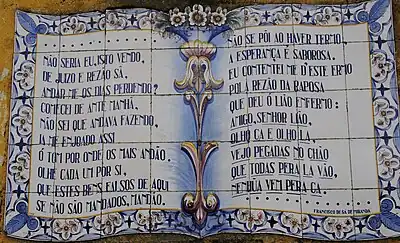 NÃO SERIA EU, ISTO VENDO,
DE JUIZO E REZÃO SÃ,
ANDAR-ME OS DIAS PERDENDO?
COMECEI DE ANTE MANHÃ,
NÃO SEI QUE ANDAVA FAZENDO,
A ME ENJOADO ASSI
Ó TOM POR ONDE OS MAIS ANDÃO,
OLHE CADA UM POR SI,
QUE ESTES BENS FALSOS DE AQUI
SE NÃO SÃO MANDADOS, MANDÃO.
NÃO SE PÔI AO HAVER TERMO,
A ESPERANÇA É SABOROSA.
EU CONTENTEI ME D'ESTE ERMO
POLA REZÃO DA RAPOSA
QUE DEU Ó LIÃO ENFERMO:
AMIGO, SENHOR LIÃO,
OLHO CÁ E OLHO LÁ,
VEJO PEGADAS NO CHÃO
QUE TODAS PERA LÁ VÃO,
NENHŨA VEM PERA CÁ.
FRANCISCO DE SÁ DE MIRANDA